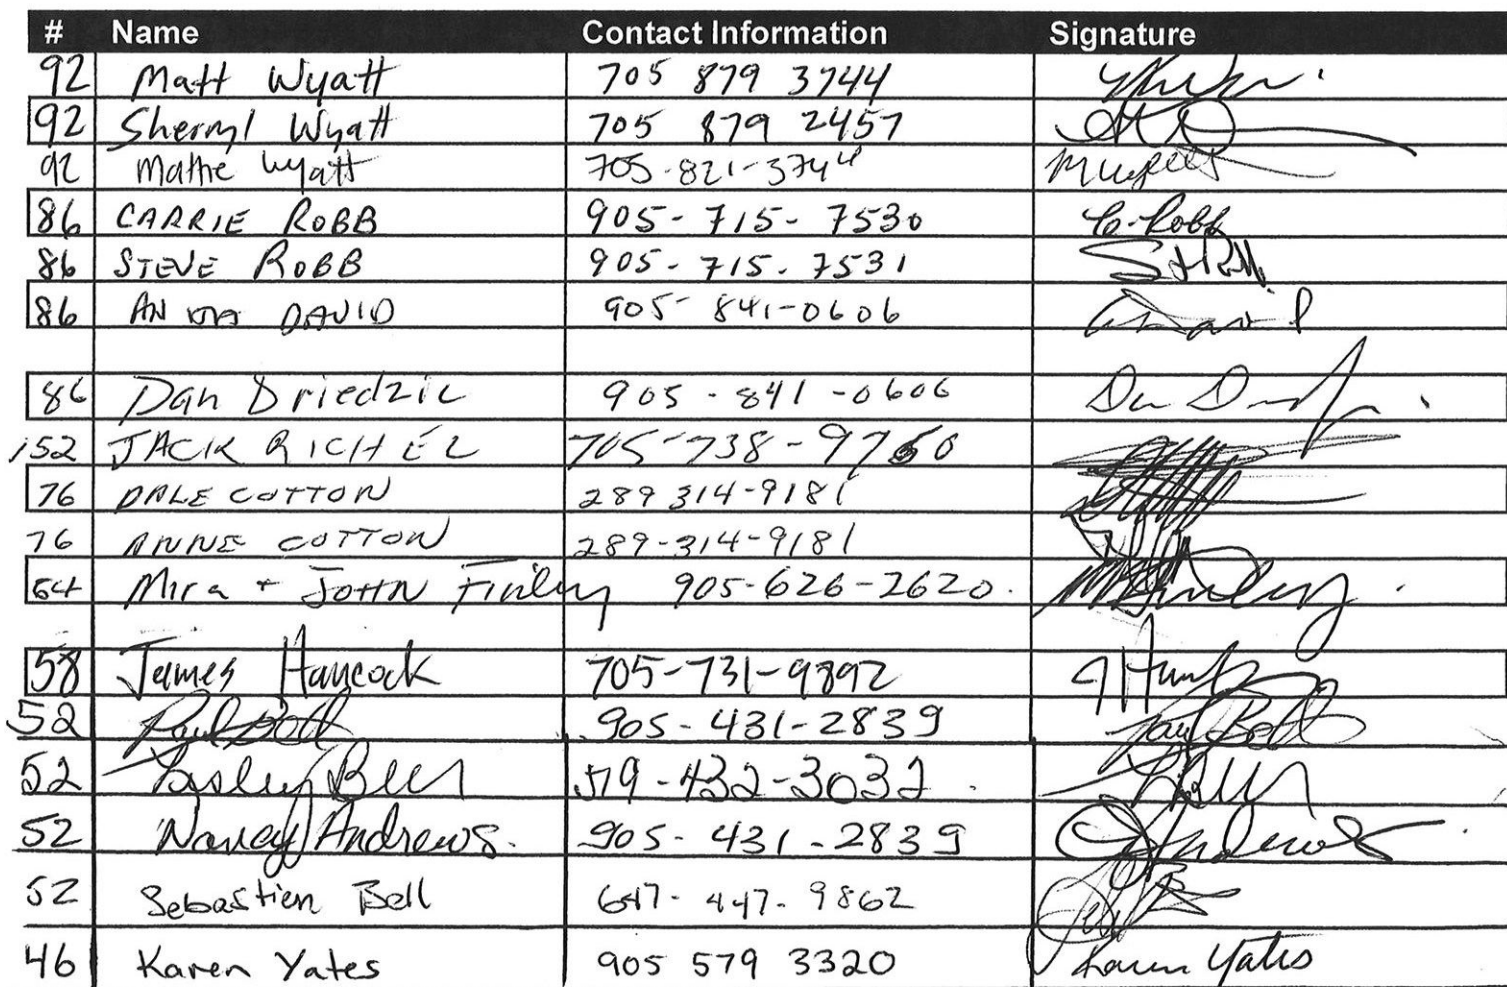 # Name Contact Information Signature
92 Matt Wyatt 705 879 3744
92 Sherryl Wyatt 705 879 2457
92 Mathe Wyatt 705-821-3744
86 CARRIE ROBB 905-715-7530 C. Robb
86 STEVE ROBB 905-715-7531
86 DAVID 905-841-0606
86 Dan Driedzic 905-841-0606
152 JACK RICHEL 705-738-9760
76 DALE COTTON 289 314-9181
76 ANNE COTTON 289-314-9181
64 Mira + JOHN Finley 905-626-2620.
58 James Haycock 705-731-9892
52 905-431-2839 Paul Bell
52 519-432-3032
52 Nancy Andrews. 905-431-2839
52 Sebastien Bell 647-447-9862
46 Karen Yates 905 579 3320 Karen Yates